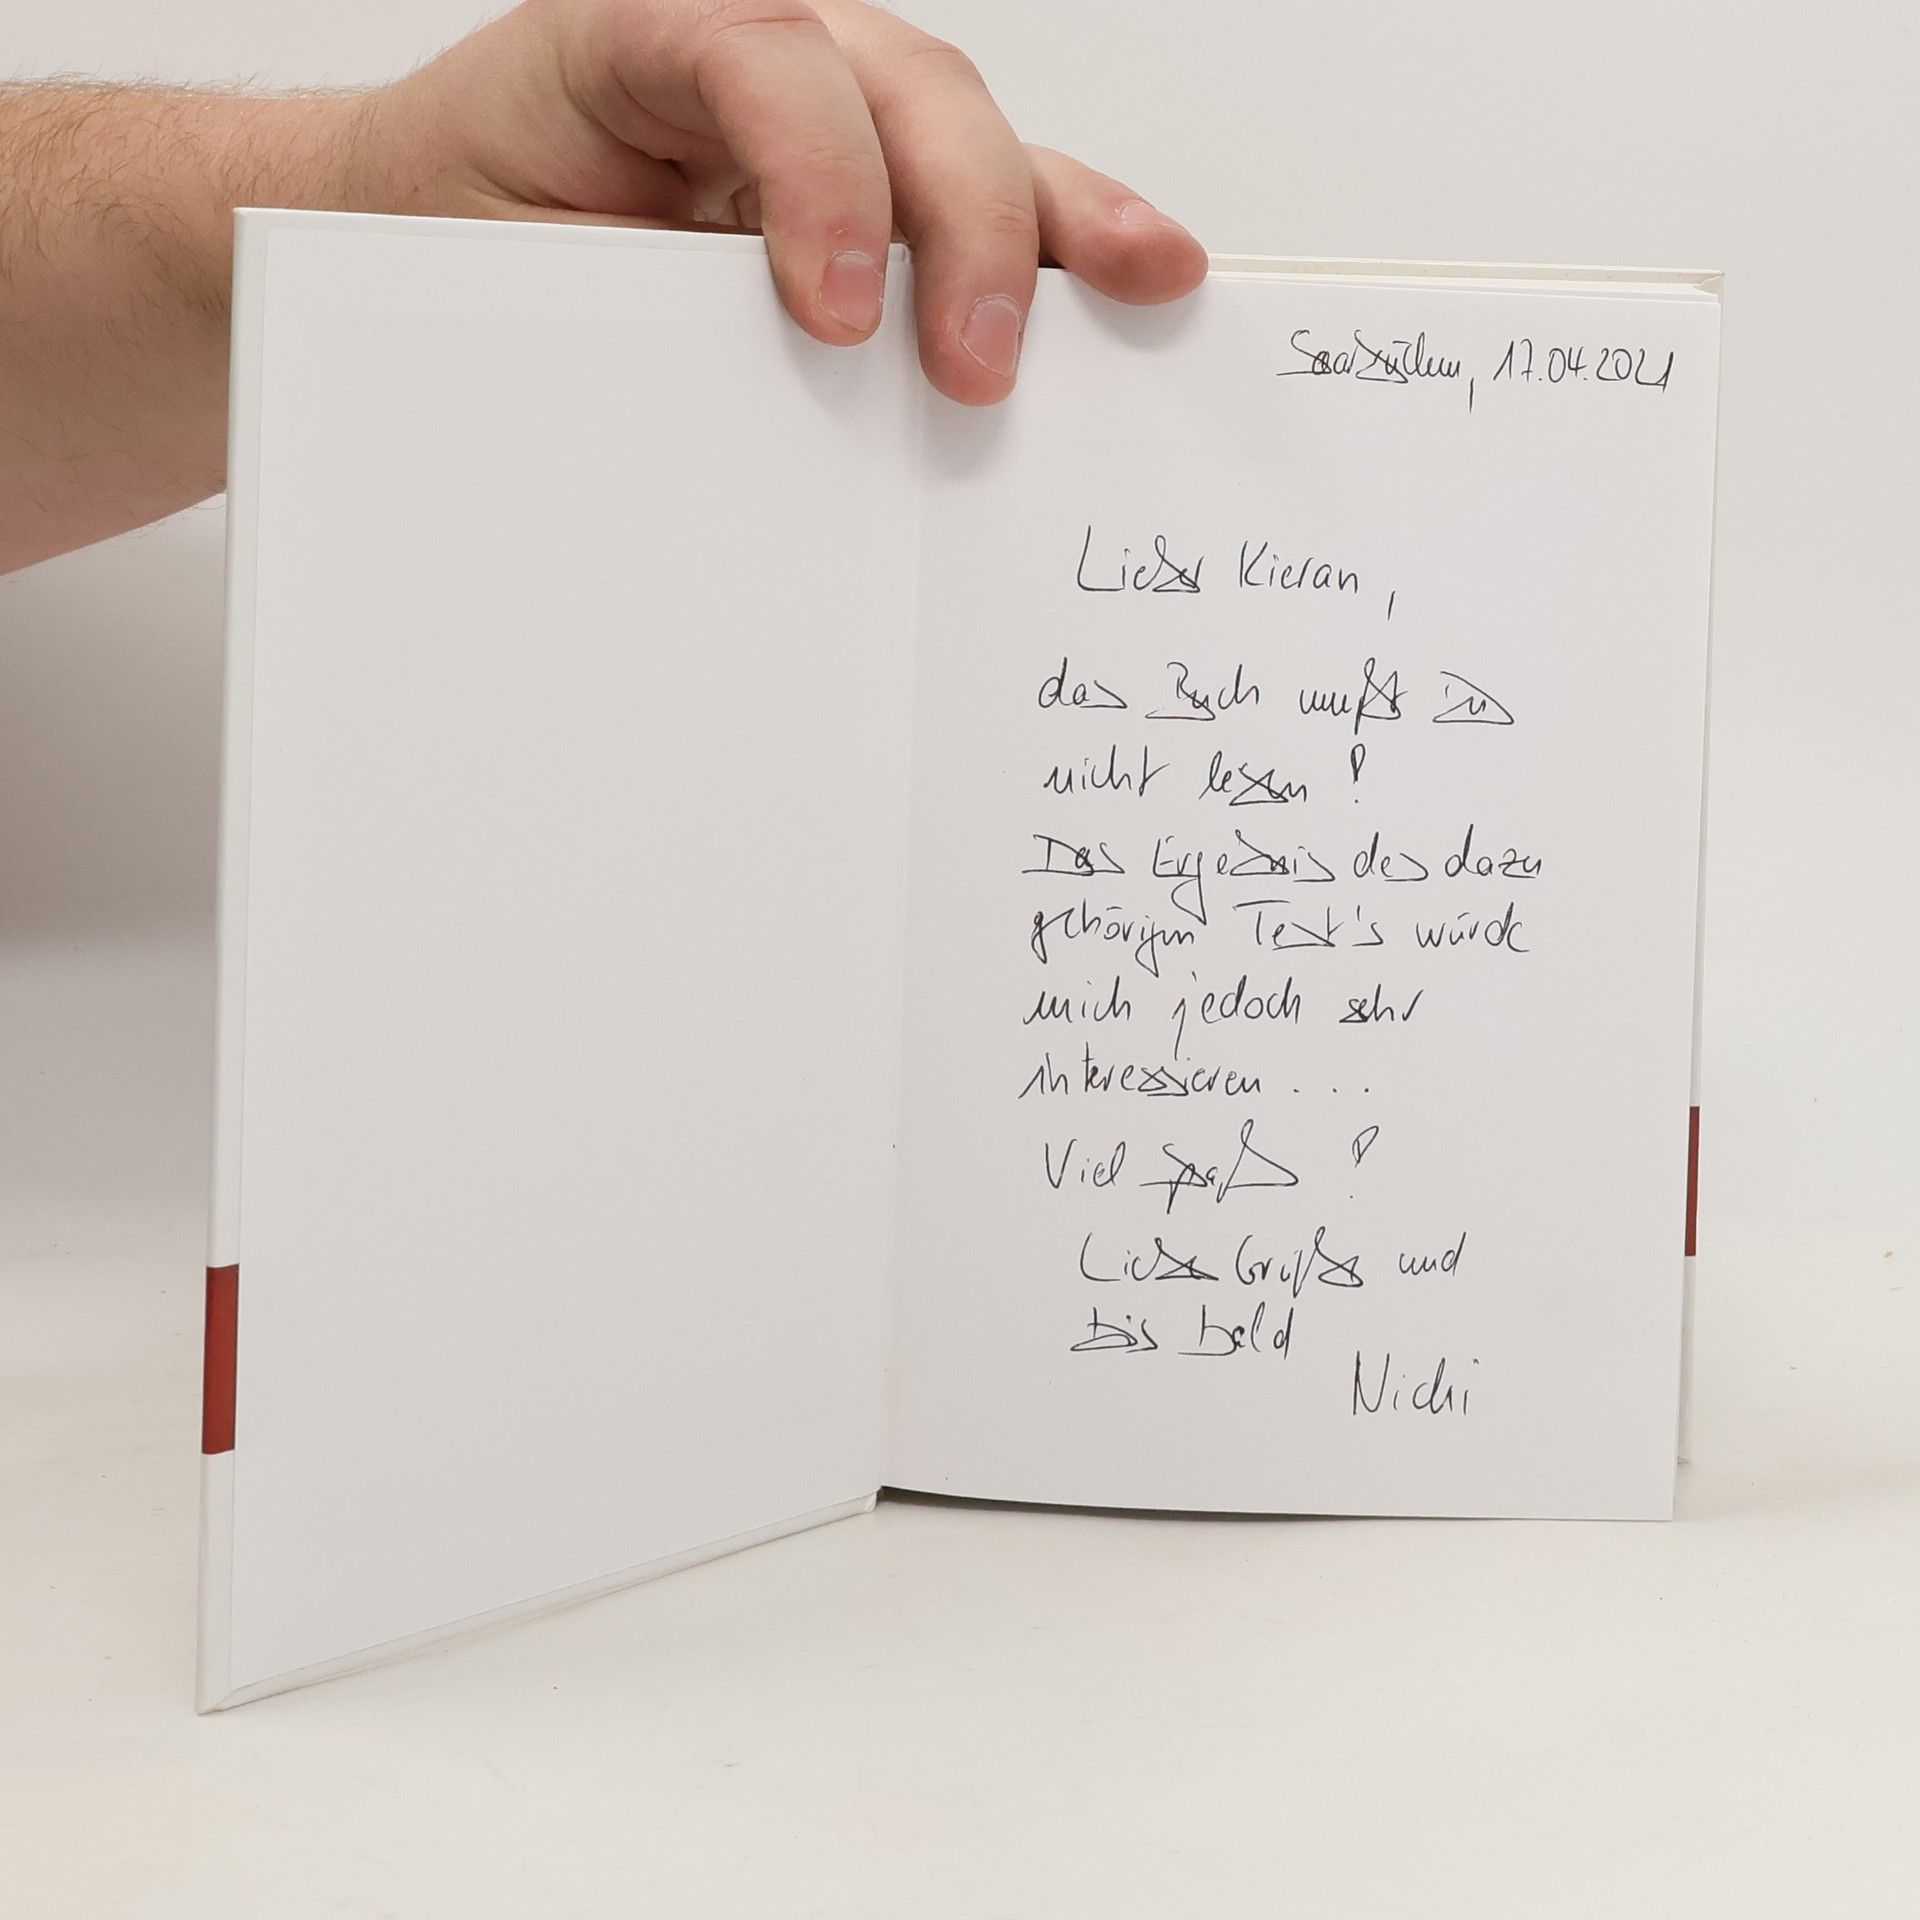 Saarbrücken, 17.04.2021
Lieber Kieran,
das Buch mußt Du
nicht lesen!
Das Ergebnis des dazu
gehörigen Test's würde
mich jedoch sehr
interessieren ...
Viel Spaß!
Liebe Grüße und
bis bald
Nicki